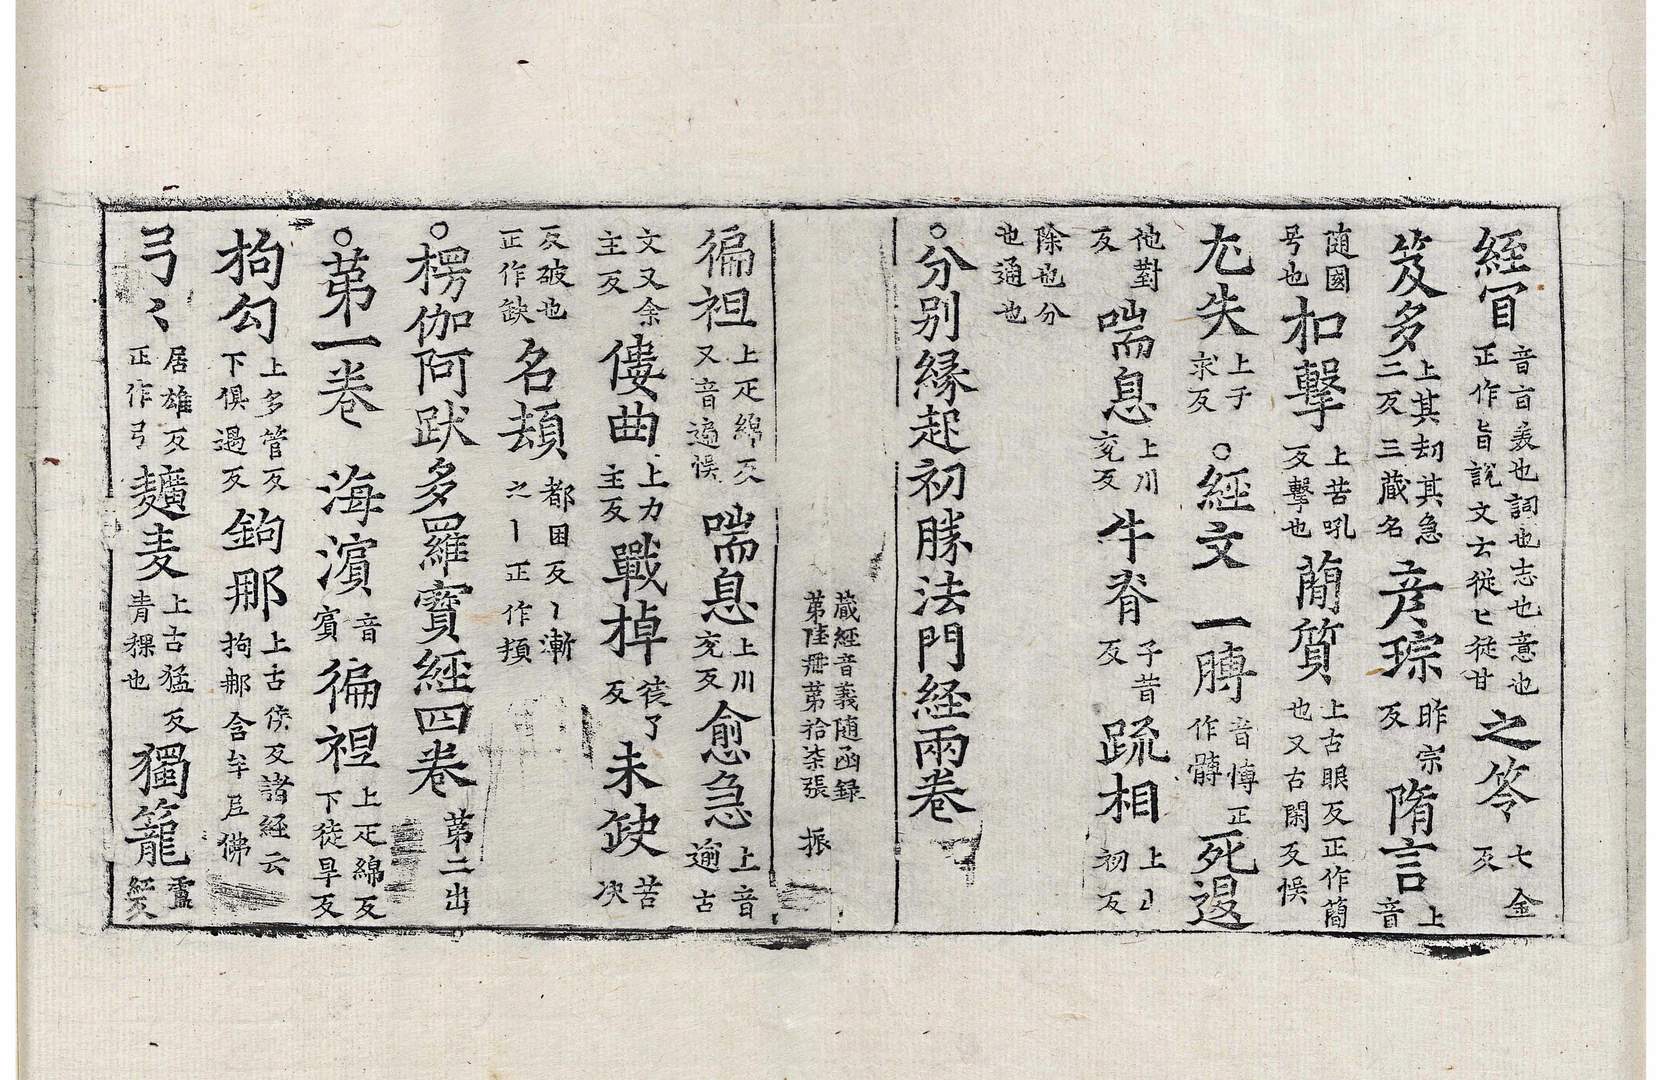 經冐音盲義也詞也志也意也正作旨說文云從匕從甘之笭七金反
笈多上其刧其急二反三藏名彦琮昨宗反隋言上音
随國号也扣擊上苦吼反擊也蕳質上古眼反正作簡也又古閑反悮
尤失上子求反○經文一膊音愽正作髆死退
他對反喘息上川兖反牛脊子昔反疏相上初反
除也分也通也
○分别縁起初勝法門経兩卷
藏經音義随函録第陸冊第拾柒張振
徧袒上疋綿反又音遍悮喘息上川兖反愈急上音逾古
文又余主反僂曲上力主反戰掉徒了反未缺苦决
反破也正作缺名頬都困反丨漸之丨正作頓
○楞伽阿跋多羅寶經四卷第二出
○苐一卷海濵音賔徧袒上疋綿反下徒旱反
拘勾上多管反下俱遇反鉤那上古侯反諸經云拘那含牟尼佛
弓〻居雄反正作弓䵃麦上古猛反青稞也獨籠盧紅反